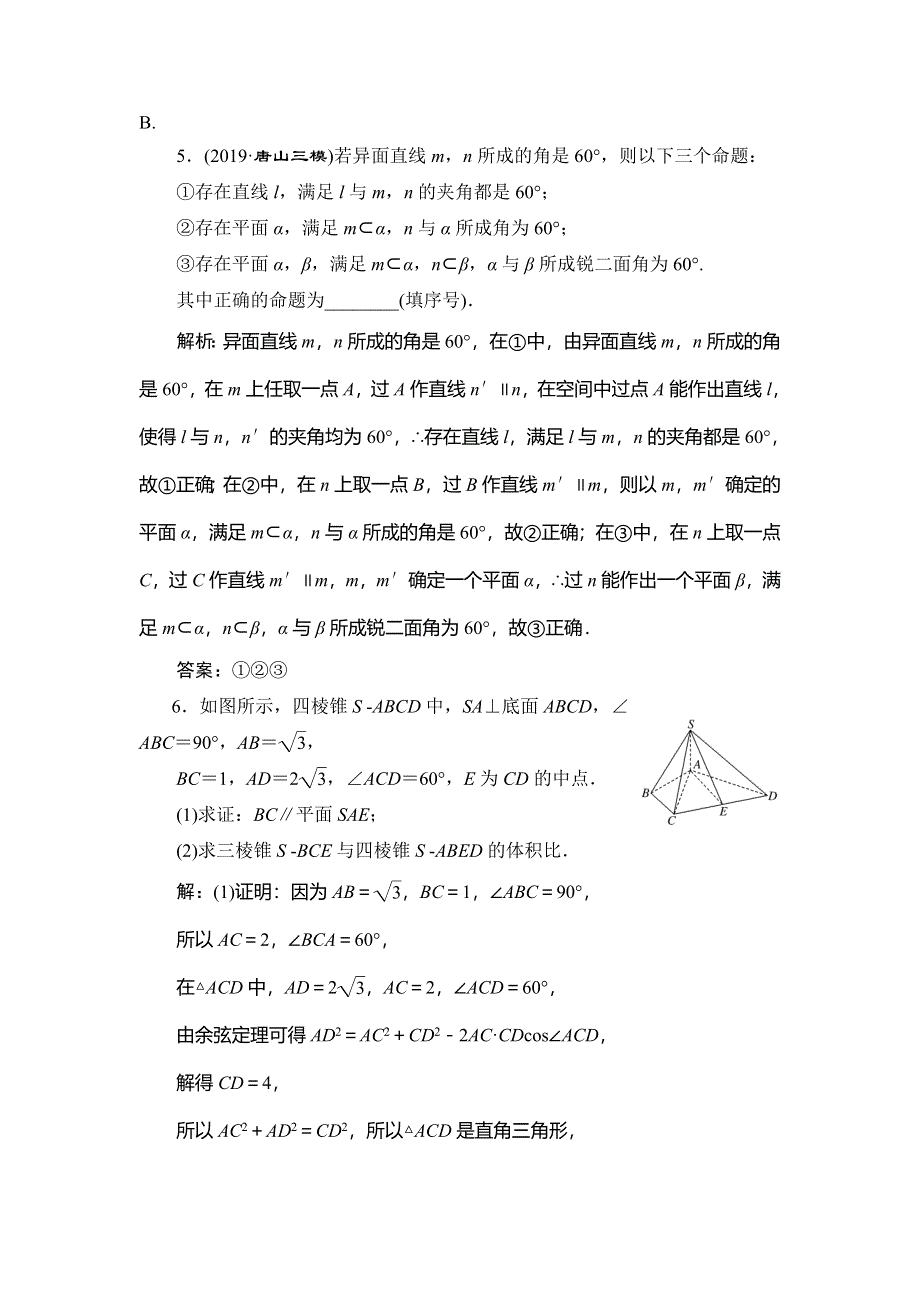 B.
5．(2019·唐山三模)若异面直线 m，n 所成的角是 60°，则以下三个命题：
①存在直线 l，满足 l 与 m，n 的夹角都是 60°；
②存在平面 α，满足 m⊂α，n 与 α 所成角为 60°；
③存在平面 α，β，满足 m⊂α，n⊂β，α 与 β 所成锐二面角为 60°.
其中正确的命题为________(填序号)．
解析：异面直线 m，n 所成的角是 60°，在①中，由异面直线 m，n 所成的角
是 60°，在 m 上任取一点 A，过 A 作直线 n′∥n，在空间中过点 A 能作出直线 l，
使得 l 与 n，n′的夹角均为 60°，∴存在直线 l，满足 l 与 m，n 的夹角都是 60°，
故①正确；在②中，在 n 上取一点 B，过 B 作直线 m′∥m，则以 m，m′确定的
平面 α，满足 m⊂α，n 与 α 所成的角是 60°，故②正确；在③中，在 n 上取一点
C，过 C 作直线 m′∥m，m，m′确定一个平面 α，∴过 n 能作出一个平面 β，满
足 m⊂α，n⊂β，α 与 β 所成锐二面角为 60°，故③正确．
答案：①②③
6．如图所示，四棱锥 S -ABCD 中，SA⊥底面 ABCD，∠
ABC＝90°，AB＝√3，
BC＝1，AD＝2√3，∠ACD＝60°，E 为 CD 的中点．
(1)求证：BC∥平面 SAE；
(2)求三棱锥 S -BCE 与四棱锥 S -ABED 的体积比．
S
A
B
D
E
C
解：(1)证明：因为 AB＝√3，BC＝1，∠ABC＝90°，
所以 AC＝2，∠BCA＝60°，
在△ACD 中，AD＝2√3，AC＝2，∠ACD＝60°，
由余弦定理可得 AD²＝AC²＋CD²－2AC·CDcos∠ACD，
解得 CD＝4，
所以 AC²＋AD²＝CD²，所以△ACD 是直角三角形，